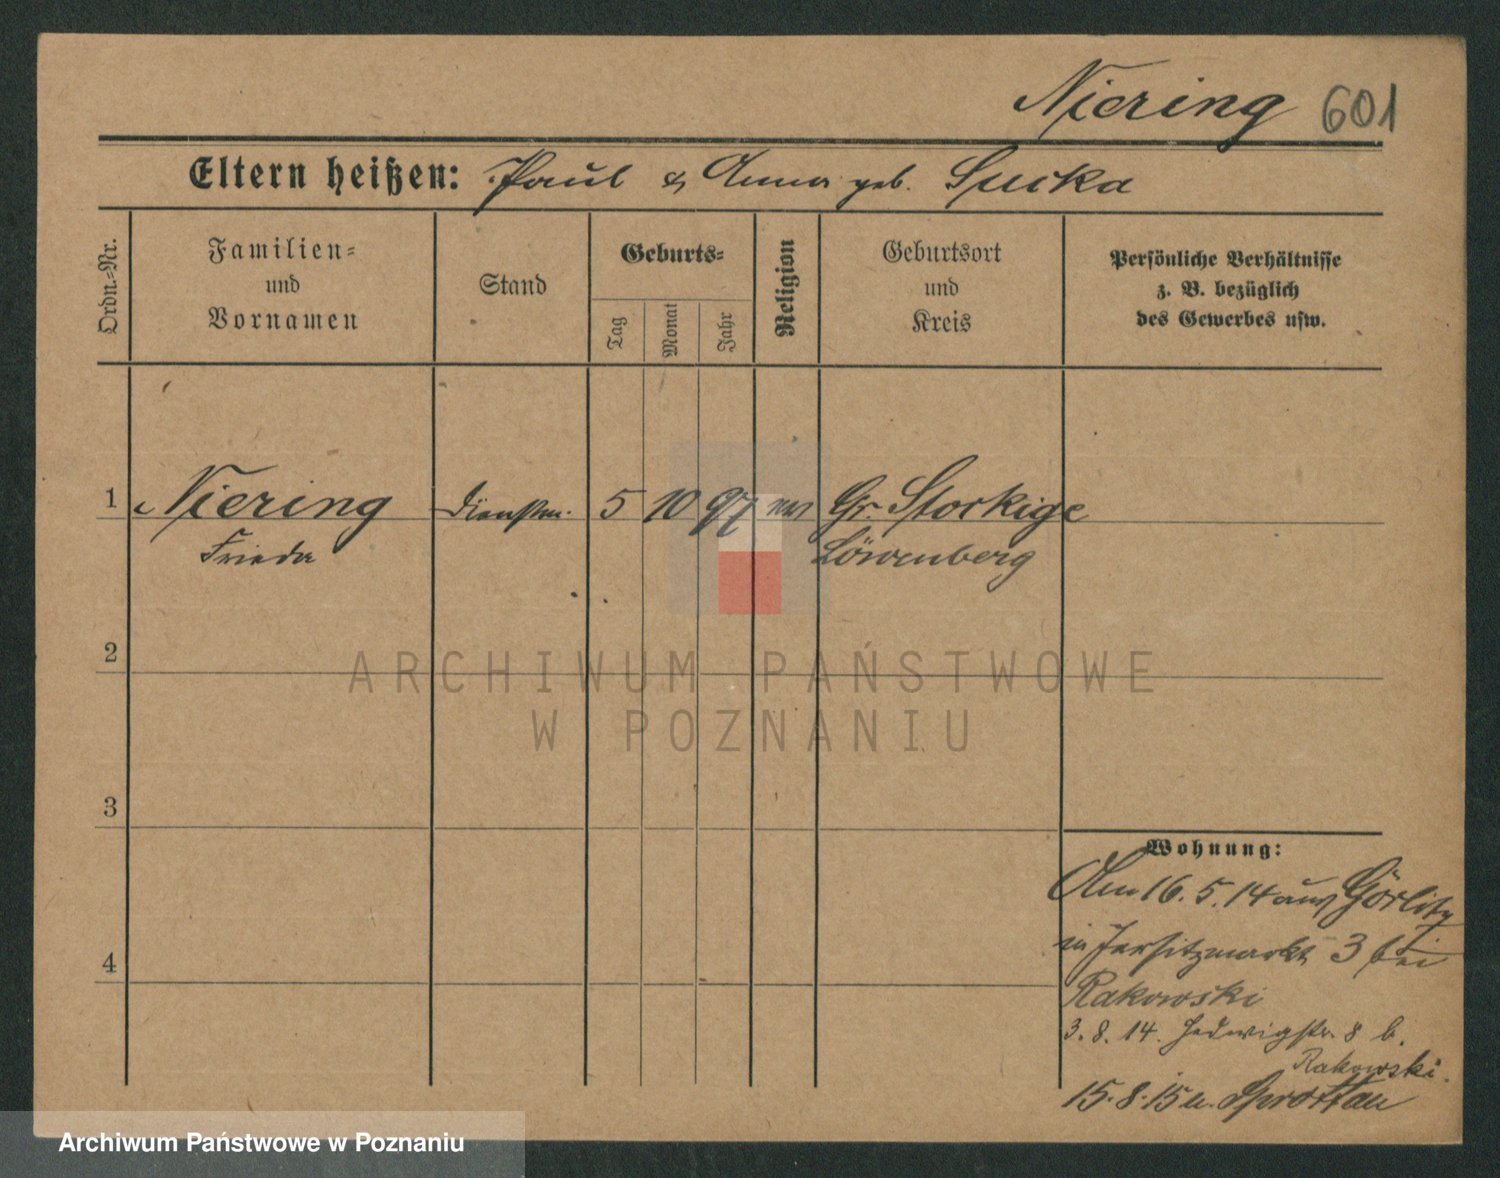 Niering 601
Eltern heißen: Paul & Anna geb. Sucka
Ordn.-Nr.
Familien-
und
Vornamen
Stand
Geburts-
Tag
Monat
Jahr
Religion
Geburtsort
und
Kreis
Persönliche Verhältnisse
z. B. bezüglich
des Gewerbes usw.
1 Niering Dienstm. 5 10 97 ev Gr. Stockige
Frieda Löwenberg
2
ARCHIWUM PAŃSTWOWE
W POZNANIU
3
Wohnung:
Am 16. 5. 14 aus Görlitz
in Jersitzmarkt 3 bei
4
Rakowski
3. 8. 14. Hedwigstr. 8 b.
Rakowski.
15. 8. 15 n. Sprottau
Archiwum Państwowe w Poznaniu